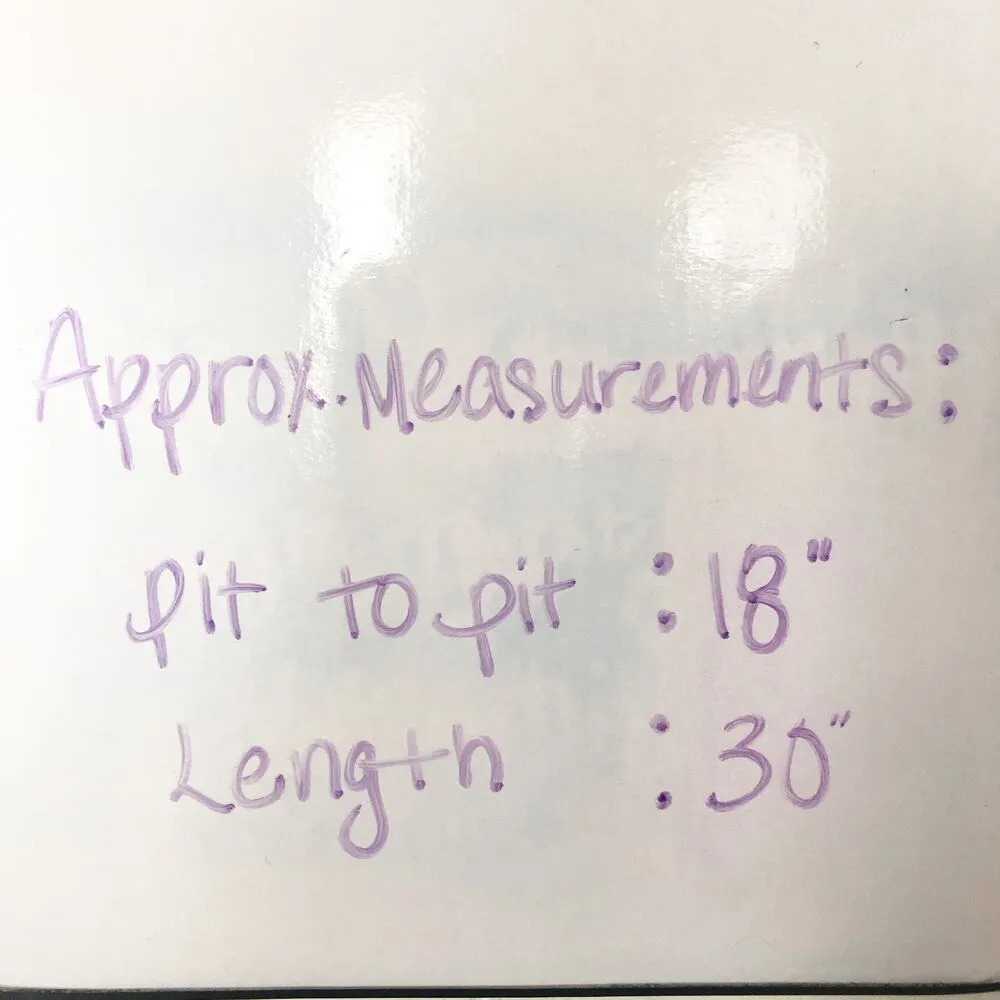 Approx. Measurements:
pit to pit : 18"
Length : 30"